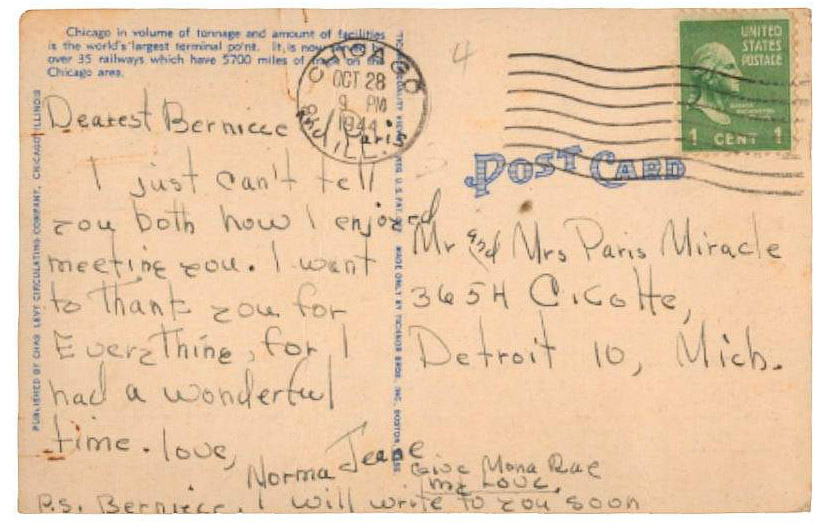 Chicago in volume of tonnage and amount of facilities
is the world's largest terminal point. It is now served by
over 35 railways which have 5700 miles of track on the
Chicago area.
PUBLISHED BY CHAS. LEVY CIRCULATING COMPANY, CHICAGO, ILLINOIS
Dearest Berniece
and Paris
I just can't tell
you both how I enjoyed
meeting you. I want
to thank you for
Everything, for I
had a wonderful
time. love,
Norma Jeane
Give Mona Rae
my Love.
P.S. Berniece, I will write to you soon
MADE ONLY BY TICHNOR BROS. INC. BOSTON, MASS
CHICAGO
OCT 28
9 PM
1944
ILL.
4
UNITED
STATES
POSTAGE
1 CENT 1
POST CARD
Mr and Mrs Paris Miracle
3654 Cicotte,
Detroit 10, Mich.